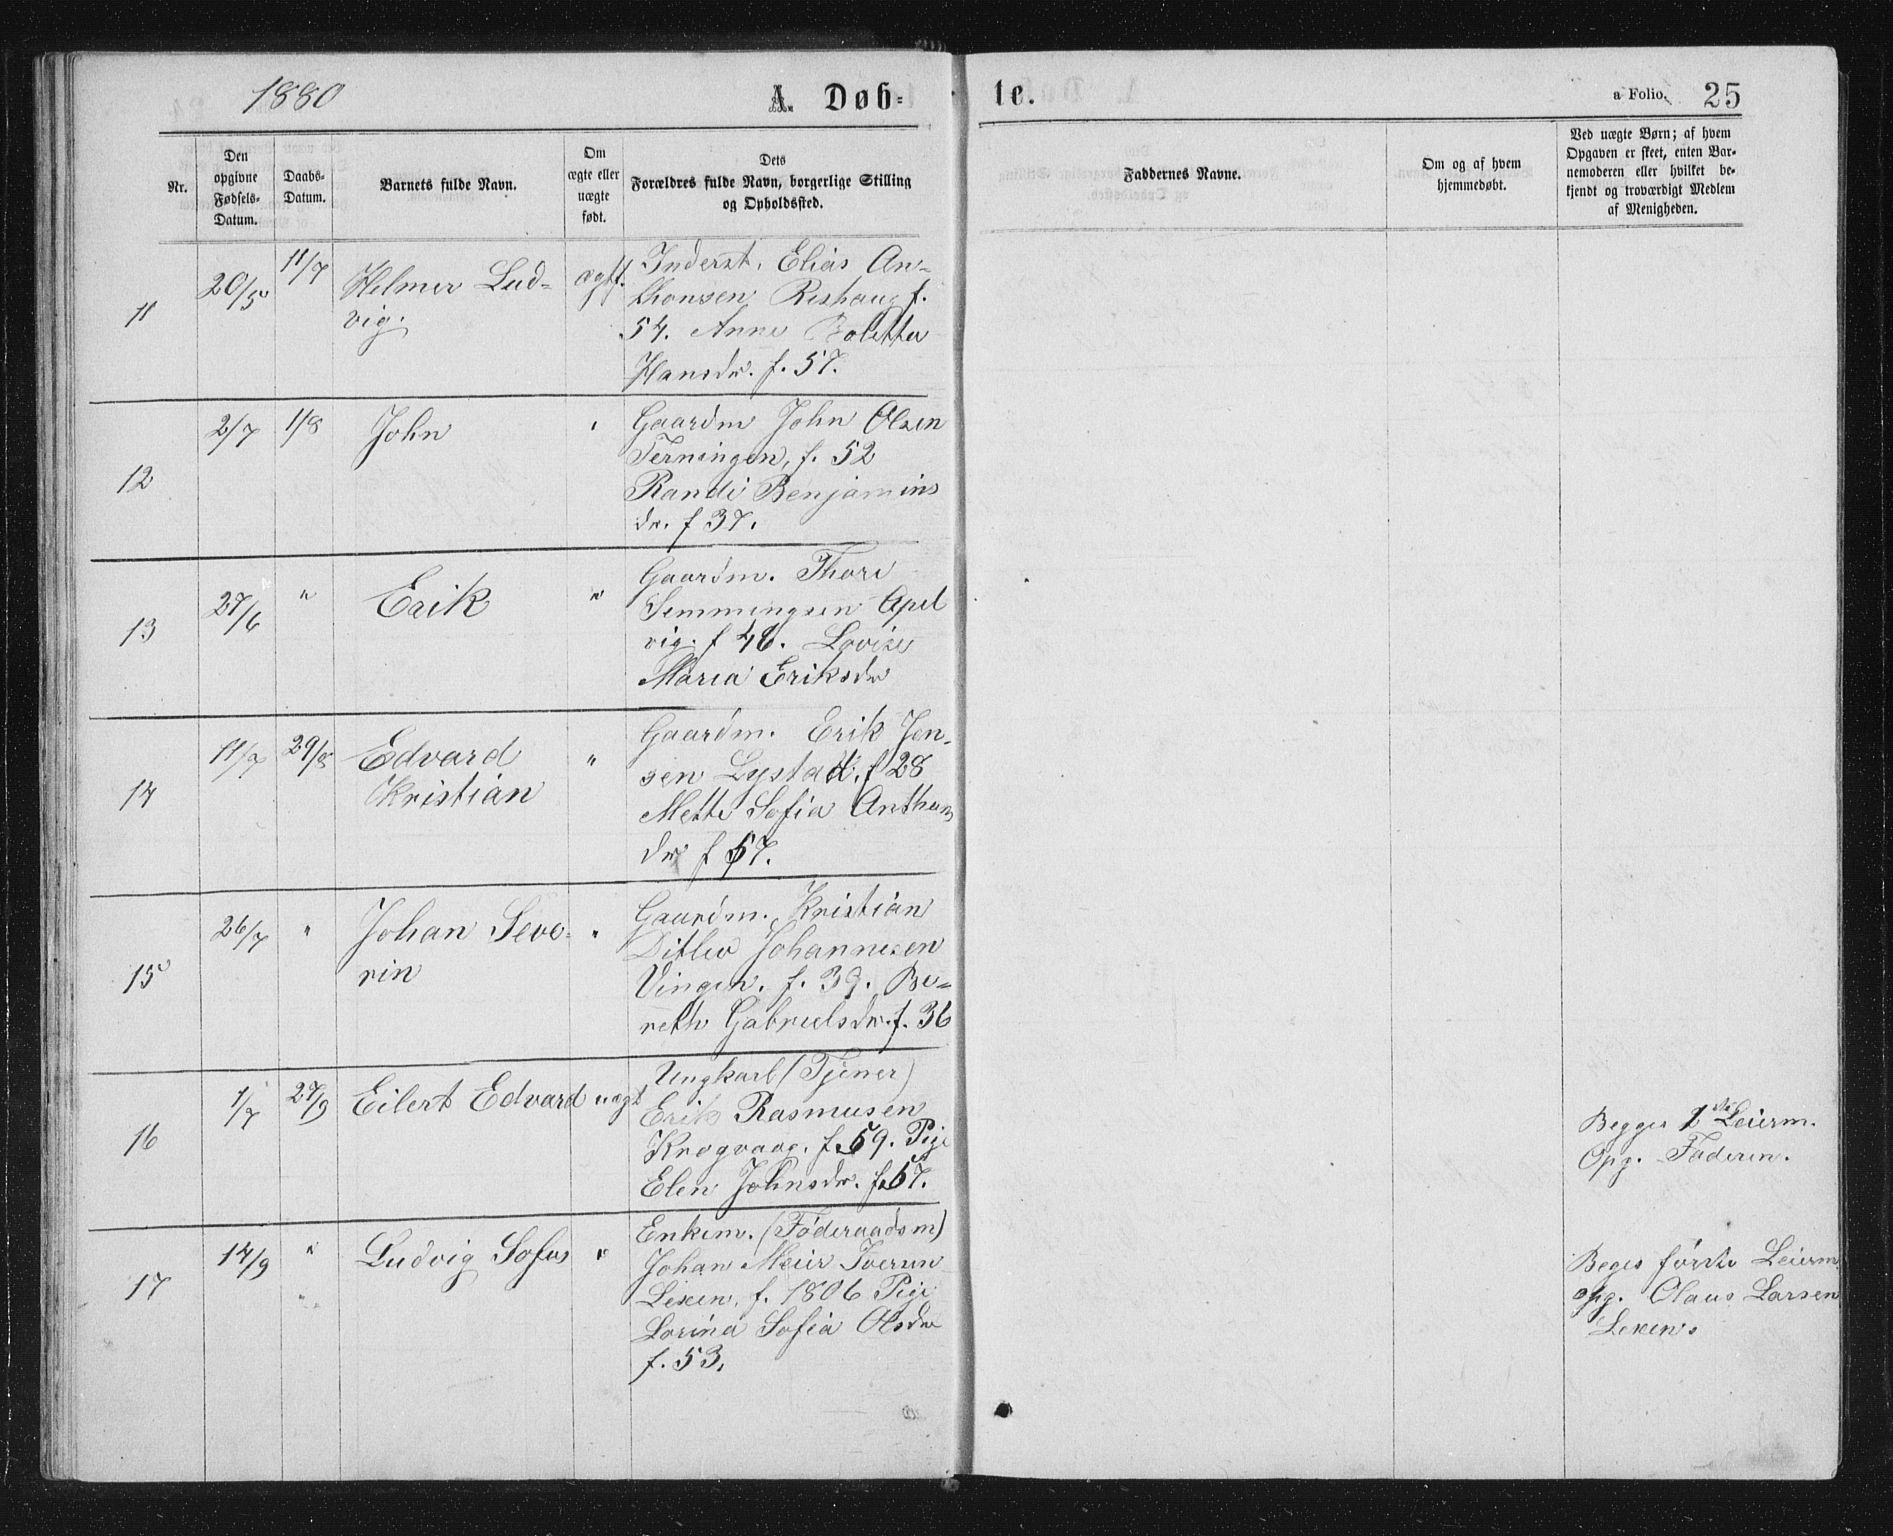 1880
A. Døb=
te.
a Folio. 25
Nr.
Den opgivne Fødsels-Datum.
Daabs-Datum.
Barnets fulde Navn.
Om ægte eller uægte født.
Dets Forældres fulde Navn, borgerlige Stilling og Opholdssted.
Faddernes Navne.
Om og af hvem hjemmedøbt.
Ved uægte Børn; af hvem Opgaven er skeet, enten Bar- nemoderen eller hvilket be- kjendt og troværdigt Medlem af Menigheden.
11
20/5
11/7
Helmer Lud-
vig.
ægtf.
Inderst, Elias An-
thonsen Rishaug f.
54. Anne Bolette
Hansdr. f. 57.
12
2/7
1/8
John
"
Gaardm John Olsen
Terningen, f. 52
Randi Benjamins
dr. f 37.
13
27/6
"
Erik
"
Gaardm. Thore
Semmingsen Apel
vig. f 46. Lovise
Maria Eriksdr
14
11/7
29/8
Edvard
Kristian
"
Gaardm. Erik Jen-
sen Lystad, f 28
Mette Sofia Anthons
dr f 57.
15
26/7
"
Johan Seve-
rin
"
Gaardm. Kristian
Ditlev Johannesen
Vingen. f. 39. Be-
reth Gabrielsdr. f. 36
16
1/7
27/9
Eilert Edvard
uægt
Ungkarl (Tjener)
Erik Rasmusen
Krogvaag. f. 59. Pige
Elen Johnsdr. f. 57.
Begges 1ste Leierm.
Opg. Faderen.
17
14/9
"
Ludvig Sofus
"
Enkem. (Føderaadsm)
Johan Meier Iversen
Lexen, f. 1806 Pige
Lorina Sofia Olsdr
f. 53.
Beges første Leierm.
opg. Olaus Larsen
Lexen.